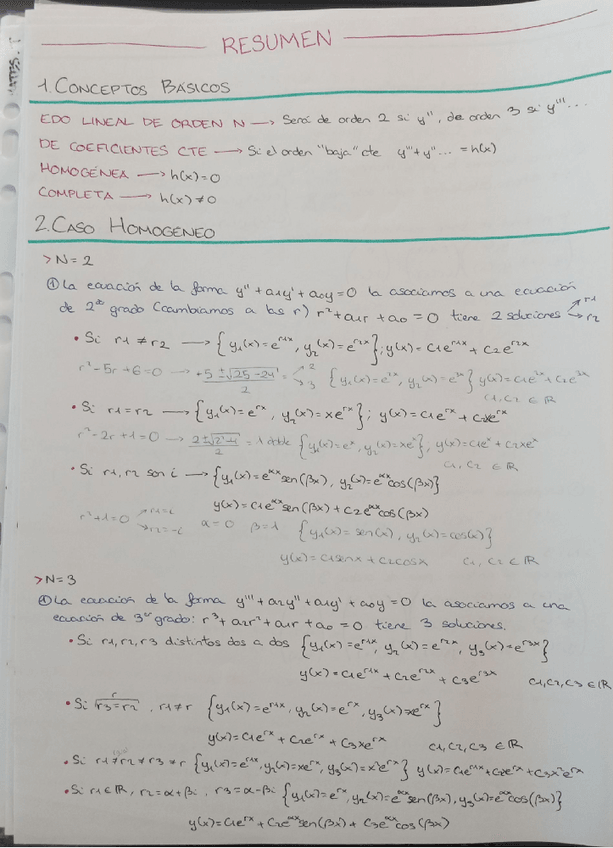 RESUMEN
1. CONCEPTOS BÁSICOS
EDO LINEAL DE ORDEN N → Será de orden 2 si y'', de orden 3 si y'''...
DE COEFICIENTES CTE → Si el orden "baja" cte y'''+y''... = h(x)
HOMOGÉNEA → h(x)=0
COMPLETA → h(x)≠0
2. CASO HOMOGENEO
> N=2
① La ecuación de la forma y''+a1y'+a0y=0 la asociamos a una ecuación
de 2º grado (cambiamos a las r) r²+a1r+a0=0 tiene 2 soluciones → r1 → r2
• Si r1≠r2 → {y1(x)=e^r1x, y2(x)=e^r2x}; y(x)=C1e^r1x+C2e^r2x
r²-5r+6=0 → +5±√25-24/2 = 2, 3 {y1(x)=e^2x, y2(x)=e^3x} y(x)=C1e^2x+C2e^3x
C1, C2 ∈ ℝ
• Si r1=r2 → {y1(x)=e^rx, y2(x)=xe^rx}; y(x)=C1e^rx+C2xe^rx
r²-2r+1=0 → = 1 doble {y1(x)=e^x, y2(x)=xe^x}, y(x)=C1e^x+C2xe^x
C1, C2 ∈ ℝ
• Si r1, r2 son i → {y1(x)=e^αx sen(βx), y2(x)=e^αx cos(βx)}
y(x)=C1e^αx sen(βx)+C2e^αx cos(βx)
r²+1=0 → r1=i → r2=-i α=0 β=1 {y1(x)=sen(x), y2(x)=cos(x)}
y(x)=C1senx+C2cosx C1, C2 ∈ ℝ
> N=3
① La ecuación de la forma y'''+a2y''+a1y'+a0y=0 la asociamos a una
ecuación de 3er grado: r³+a2r²+a1r+a0=0 tiene 3 soluciones.
• Si r1, r2, r3 distintos dos a dos {y1(x)=e^r1x, y2(x)=e^r2x, y3(x)=e^r3x}
y(x)=C1e^r1x+C2e^r2x+C3e^r3x C1,C2,C3 ∈ ℝ
• Si r r3=r2, r1≠r {y1(x)=e^r1x, y2(x)=e^rx, y3(x)=xe^rx}
y(x)=C1e^rx+C2e^rx+C3xe^rx C1,C2,C3 ∈ ℝ
• Si {y1(x)=e^r1x, y2(x)=xe^rx, y3(x)=x²e^rx} y(x)=C1e^rx+C2xe^rx+C3x²e^rx
• Si r1∈ℝ, r2=α+βi, r3=α-βi {y1(x)=e^rx, y2(x)=e^αx sen(βx), y3(x)=e^αx cos(βx)}
y(x)=C1e^rx+C2e^αx sen(βx)+C3e^αx cos(βx)